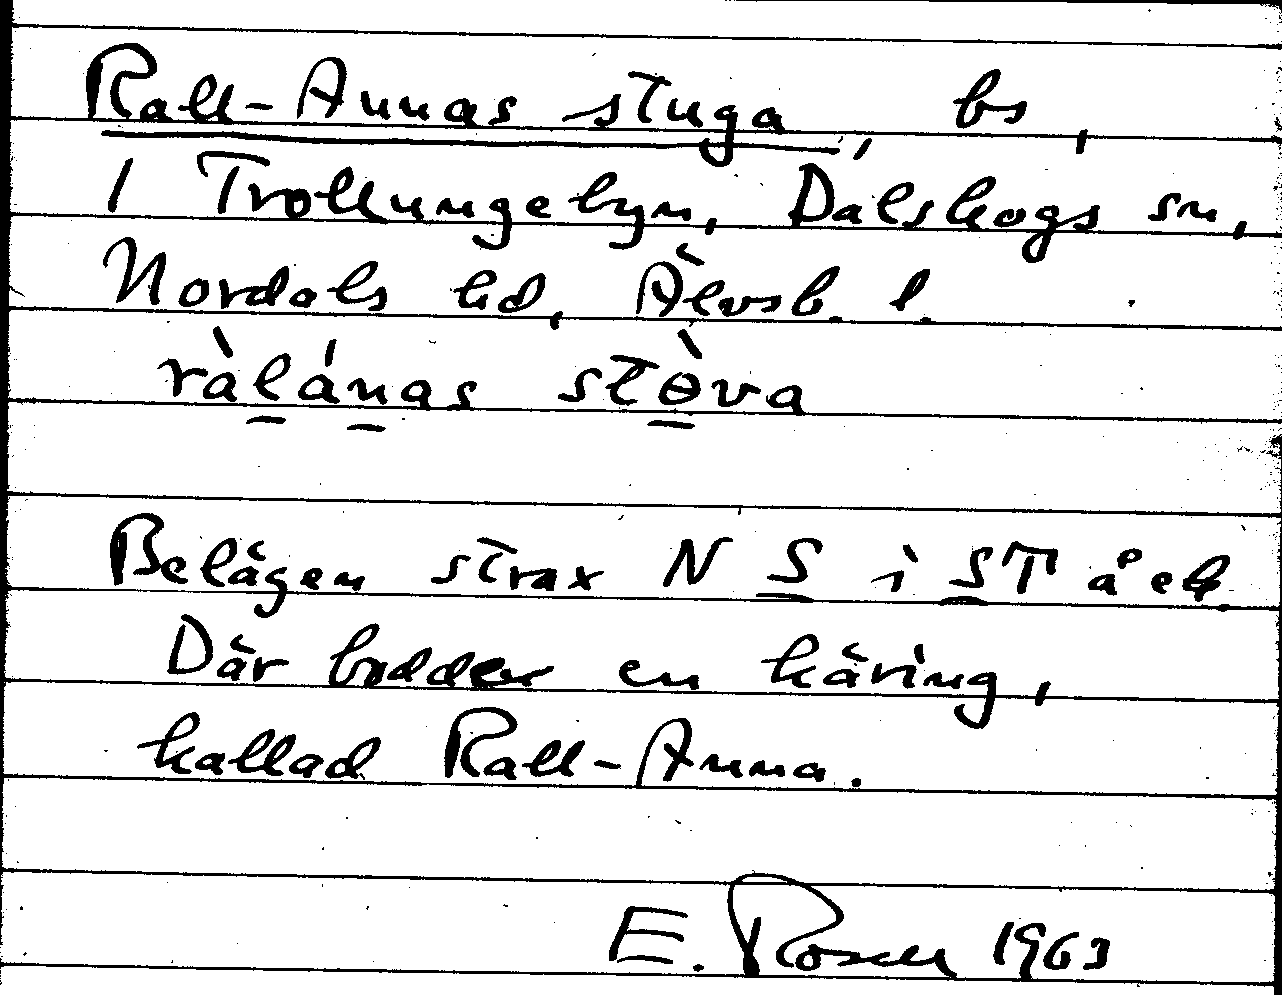 Rall-Annas stuga, bs,
1 Trollungebyn, Dalskogs sn,
Nordals hd, Älvsb. l.
ràlánas stə̀va
Belägen strax N S i ST å ek.
Där bodde en käring,
kallad Rall-Anna.
E. Rosell 1963